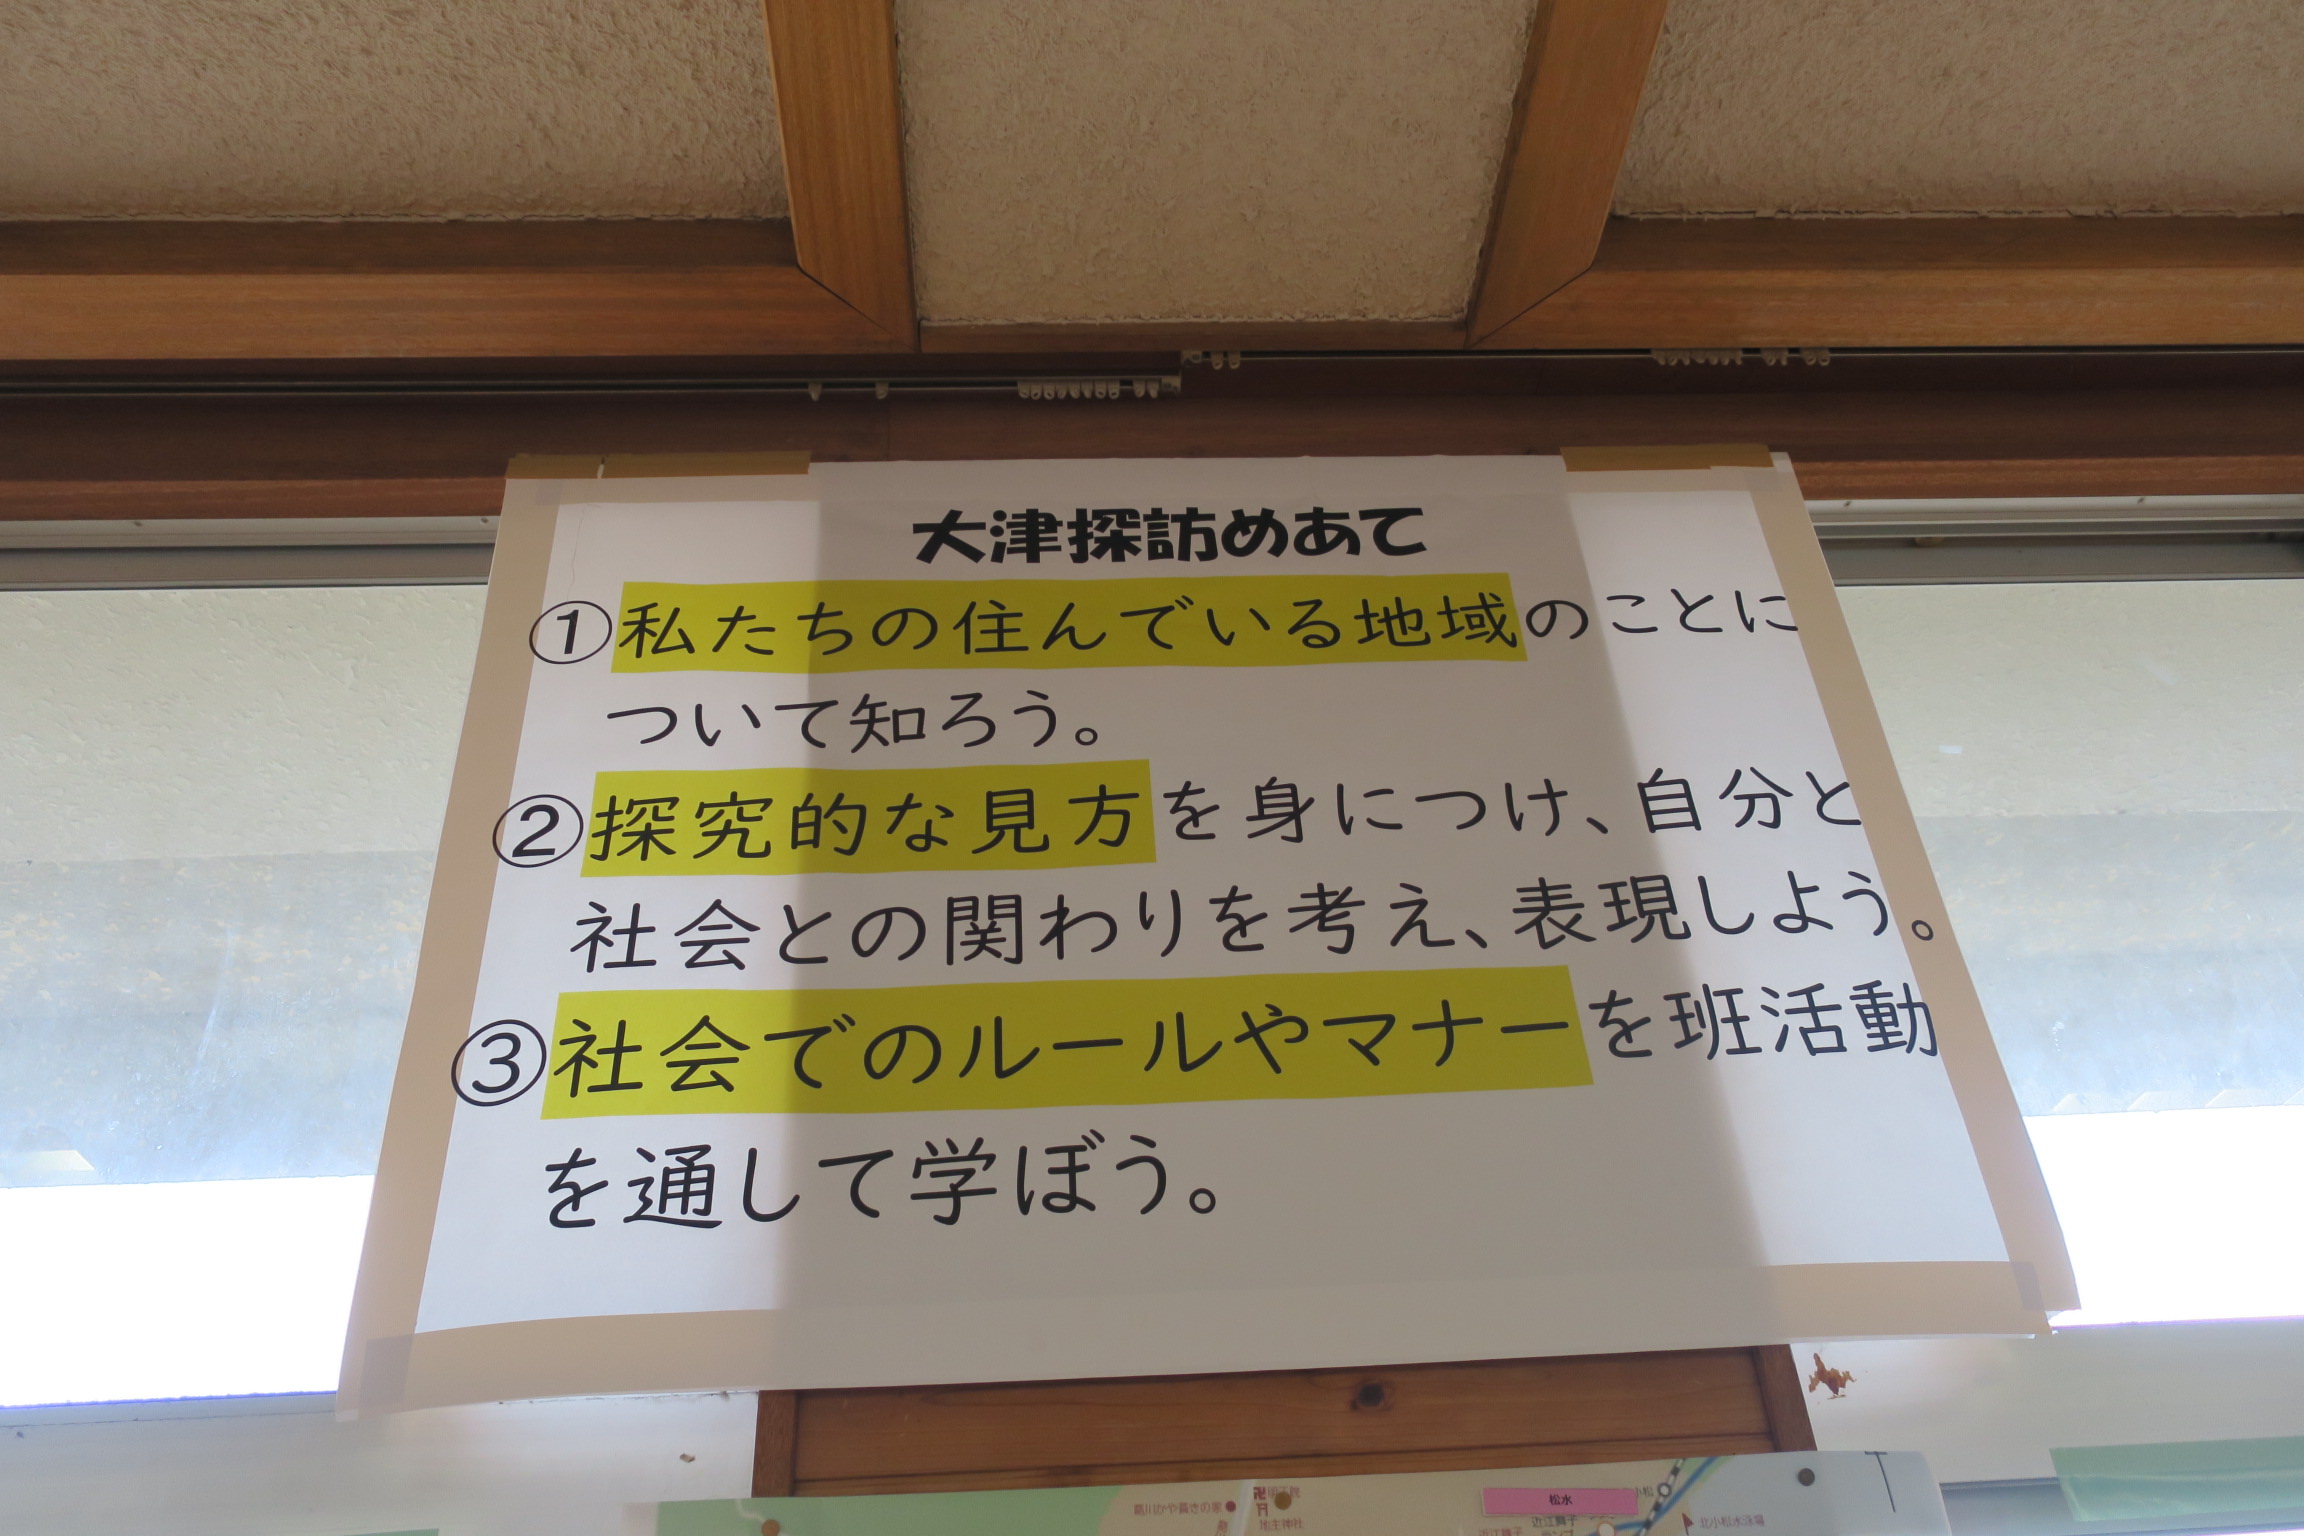 大津探訪めあて
①私たちの住んでいる地域のことに
ついて知ろう。
②探究的な見方を身につけ、自分と
社会との関わりを考え、表現しよう。
③社会でのルールやマナーを班活動
を通して学ぼう。
松水
地主神社
近江舞子
北小松水泳場